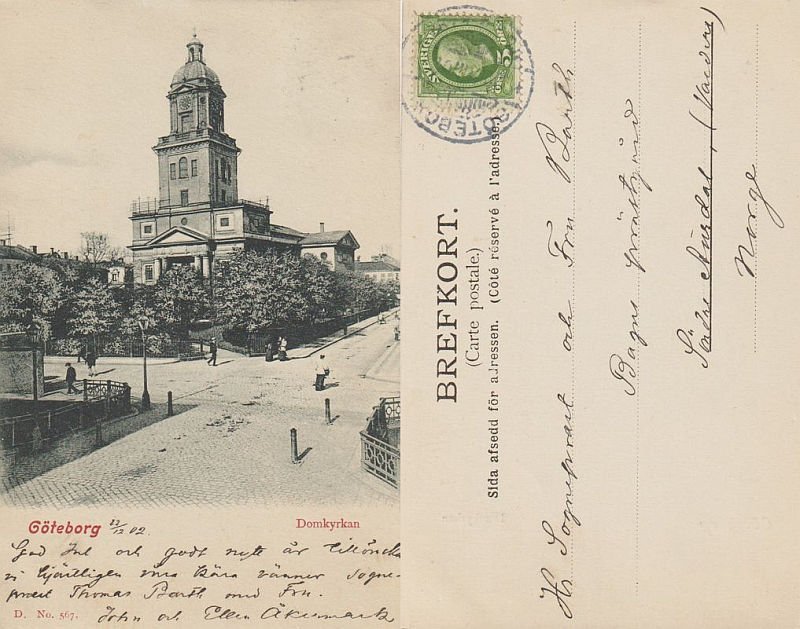 Göteborg 22/12 02.
Domkyrkan
God Jul och godt nytt år tillönska
vi hjärtligen våra kära vänner Sogne-
præst Thomas Barth med Fru.
John och Ellen Åkermark
D. No. 567.
SVERIGE
5
GÖTEBORG
BREFKORT.
(Carte postale.)
Sida afsedd för adressen. (Côté réservé à l'adresse.)
Hr Sognepræst och Fru Barth
Bagns prästgård
Söndre Aurdal, (Valdres)
Norge